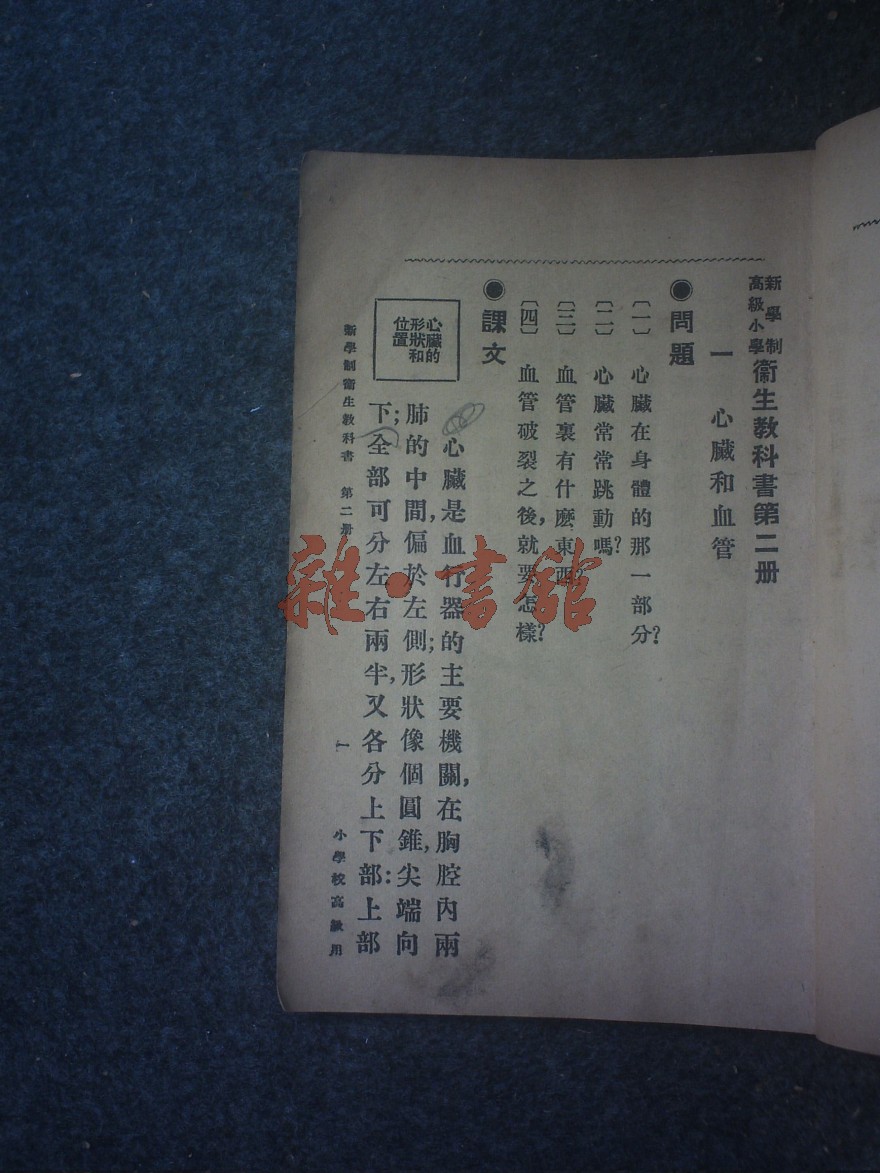 新學制
高級小學
衞生教科書第二册
一　心臟和血管
◉問題
〔一〕　心臟在身體的那一部分？
〔二〕　心臟常常跳動嗎？
〔三〕　血管裏有什麽東西
〔四〕　血管破裂之後，就要怎樣？
◉課文
心臟的
形狀和
位置
心臟是血行器的主要機關，在胸腔內兩
肺的中間，偏於左側；形狀像個圓錐，尖端向
下；全部可分左右兩半，又各分上下部：上部
新學制衞生教科書　第二册　一　小學校高級用
雜·書館